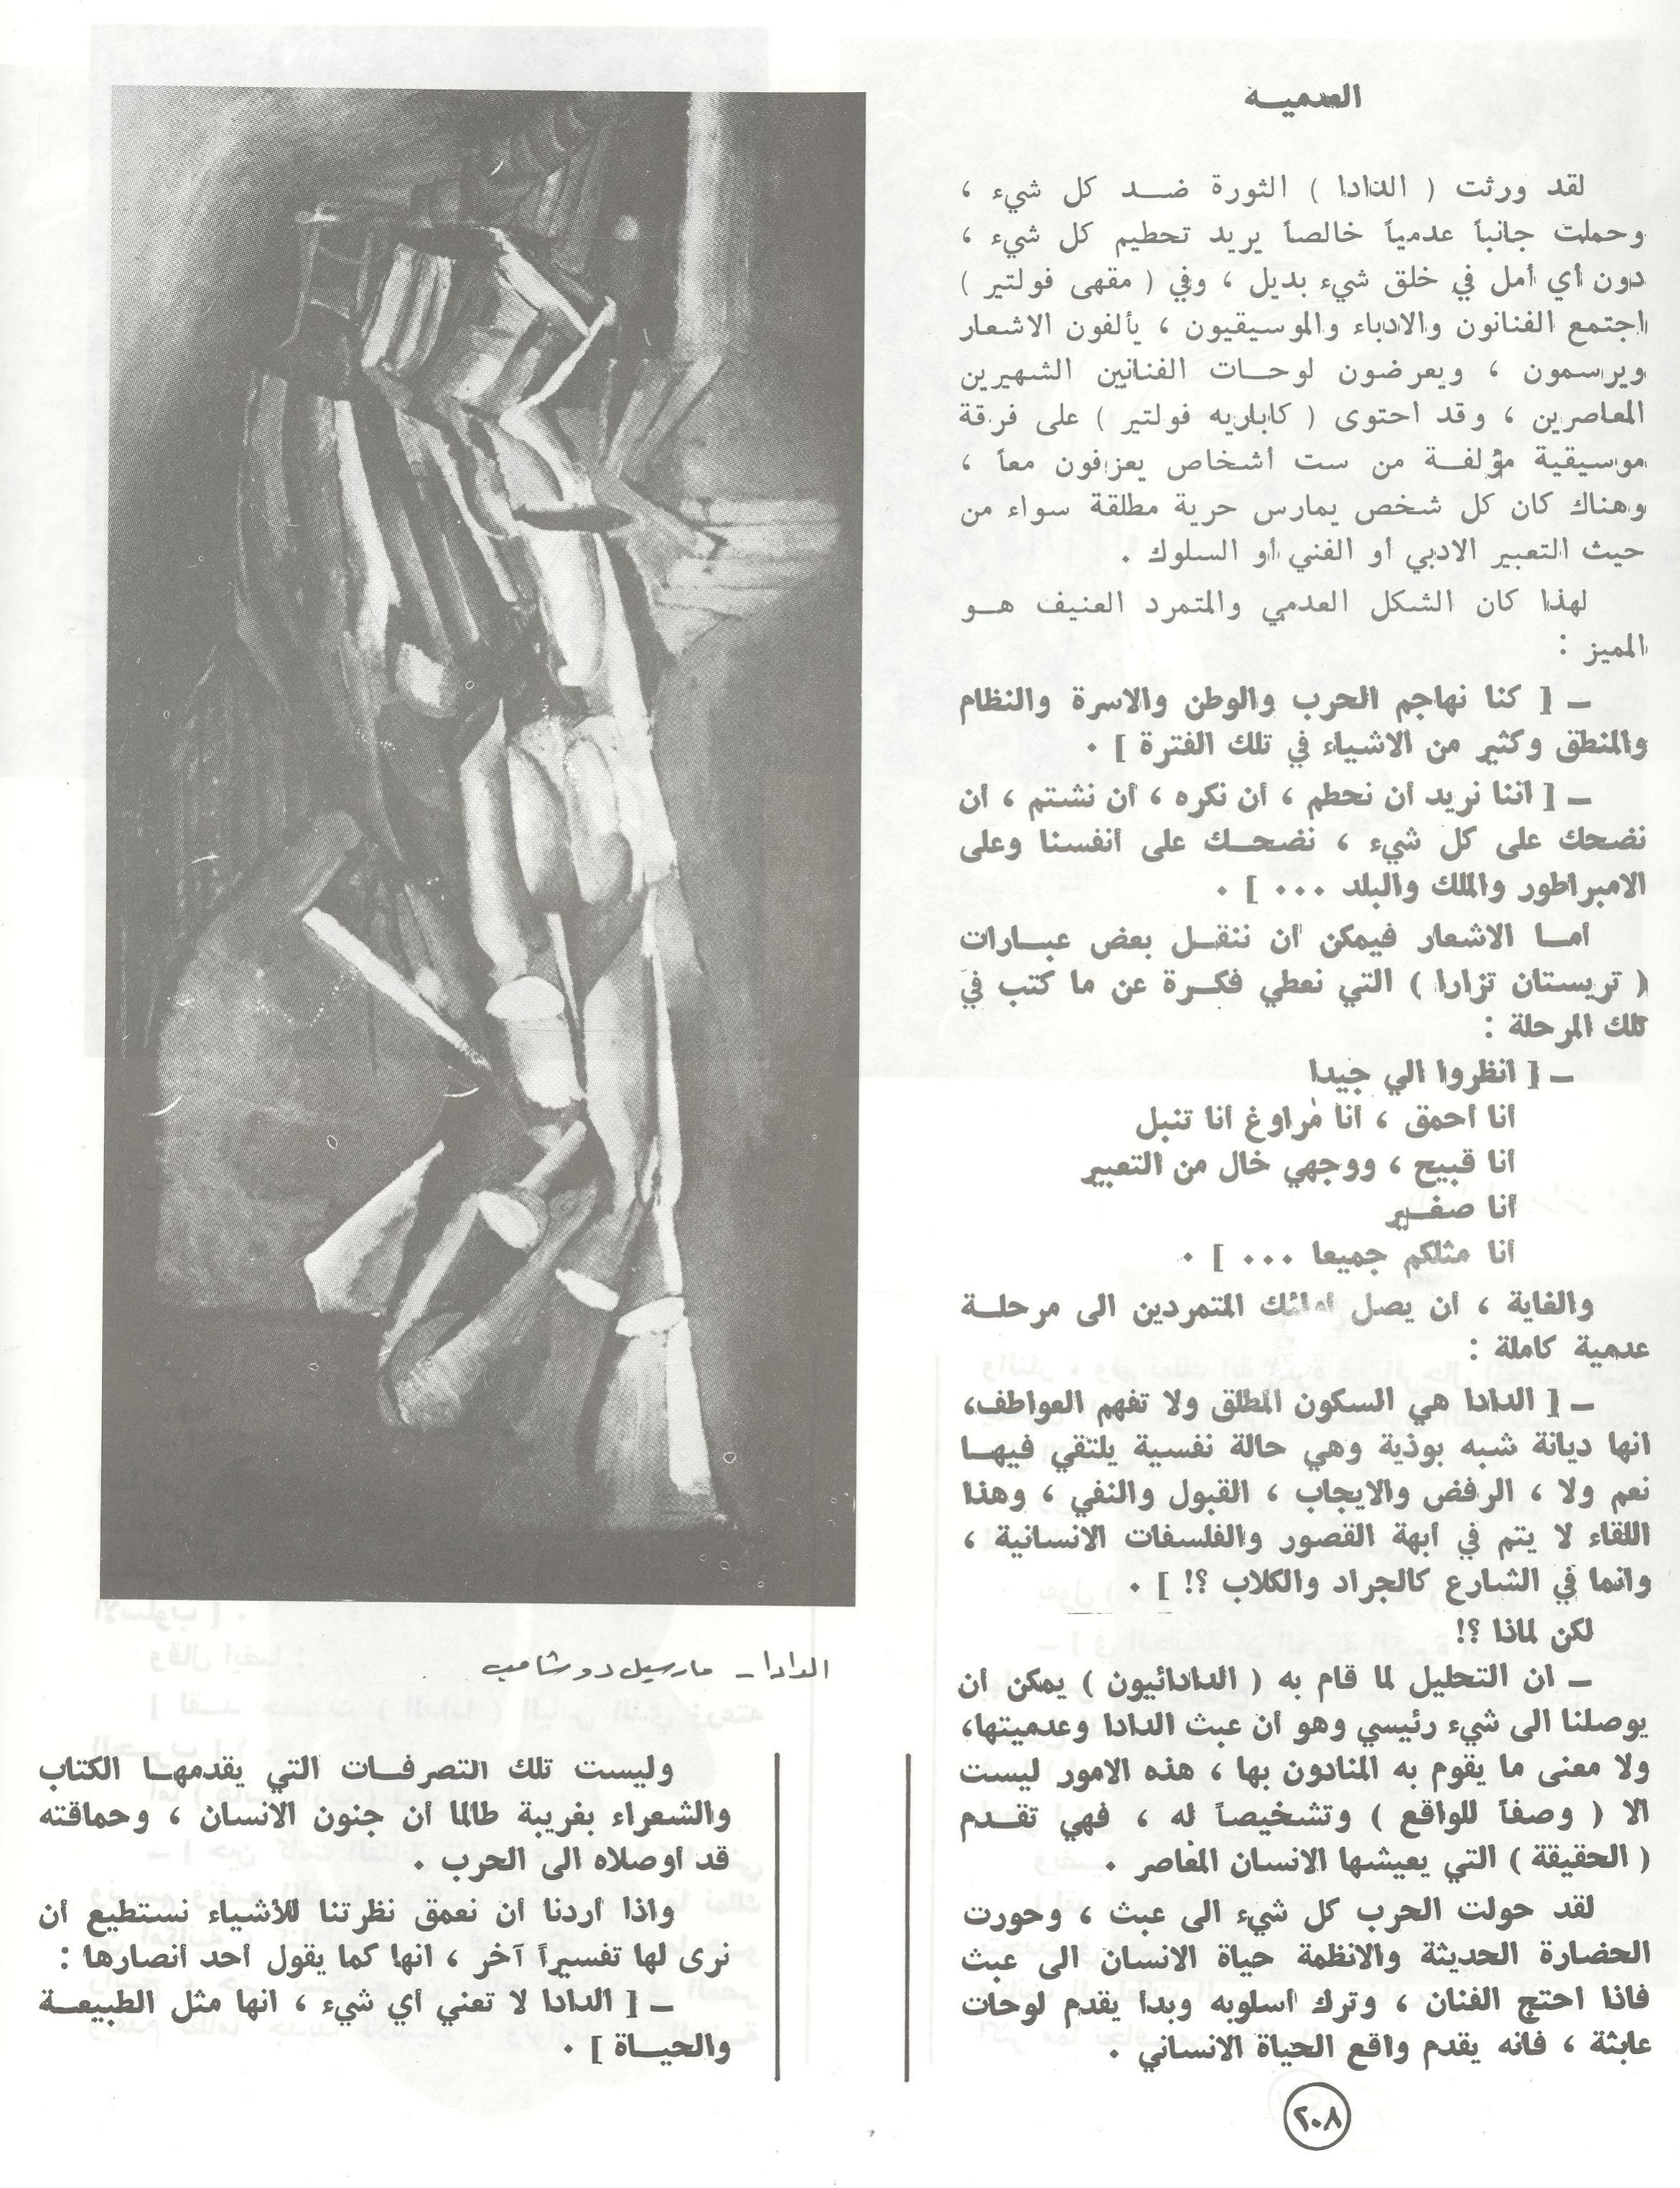 العدميــة
لقد ورثت ( الدادا ) الثورة ضــد كل شيء ،
وحملت جانباً عدمياً خالصاً يريد تحطيم كل شيء ،
دون أي أمل في خلق شيء بديل ، وفي ( مقهى فولتير )
اجتمع الفنانون والادباء والموسيقيون ، يألفون الاشعار
ويرسمون ، ويعرضون لوحــات الفنانين الشهيرين
المعاصرين ، وقد احتوى ( كاباريه فولتير ) على فرقة
موسيقية مؤلفــة من ست أشخاص يعزفون معاً ،
وهناك كان كل شخص يمارس حرية مطلقة سواء من
حيث التعبير الادبي أو الفني أو السلوك .
لهذا كان الشكل العدمي والمتمرد العنيف هــو
المميز :
ــ [ كنا نهاجم الحرب والوطن والاسرة والنظام
والمنطق وكثير من الاشياء في تلك الفترة ] .
ــ [ اننا نريد أن نحطم ، أن نكره ، أن نشتم ، أن
نضحك على كل شيء ، نضحــك على أنفسنا وعلى
الامبراطور والملك والبلد ... ] .
أمــا الاشعار فيمكن أن ننقــل بعض عبــارات
( تريستان تزارا ) التي نعطي فكــرة عن ما كتب في
تلك المرحلة :
ــ [ انظروا الي جيدا
أنا أحمق ، أنا مراوغ أنا تنبل
أنا قبيح ، ووجهي خال من التعبير
أنا صغــير
أنا مثلكم جميعا ... ] .
والغاية ، أن يصل المتمردين الى مرحلــة
عدمية كاملة :
ــ [ الدادا هي السكون المطلق ولا تفهم العواطف،
انها ديانة شبه بوذية وهي حالة نفسية يلتقي فيهــا
نعم ولا ، الرفض والايجاب ، القبول والنفي ، وهذا
اللقاء لا يتم في أبهة القصور والفلسفات الانسانية ،
وانما في الشارع كالجراد والكلاب ؟! ] .
لكن لماذا ؟!
ــ ان التحليل لما قام به ( الدادائيون ) يمكن أن
يوصلنا الى شيء رئيسي وهو أن عبث الدادا وعدميتها،
ولا معنى ما يقوم به المنادون بها ، هذه الامور ليست
الا ( وصفاً للواقع ) وتشخيصاً له ، فهي تقــدم
( الحقيقة ) التي يعيشها الانسان المعاصر .
لقد حولت الحرب كل شيء الى عبث ، وحورت
الحضارة الحديثة والانظمة حياة الانسان الى عبث
فاذا احتج الفنان ، وترك أسلوبه وبدأ يقدم لوحات
عابثة ، فانه يقدم واقع الحياة الانساني .
الدادا ــ مارسيل دوشامب
وليست تلك التصرفــات التي يقدمهــا الكتاب
والشعراء بغريبة طالما أن جنون الانسان ، وحماقته
قد أوصلاه الى الحرب .
واذا أردنا أن نعمق نظرتنا للأشياء نستطيع أن
نرى لها تفسيراً آخر ، انها كما يقول أحد أنصارها :
ــ [ الدادا لا تعني أي شيء ، انها مثل الطبيعــة
والحيــاة ] .
٢٠٨